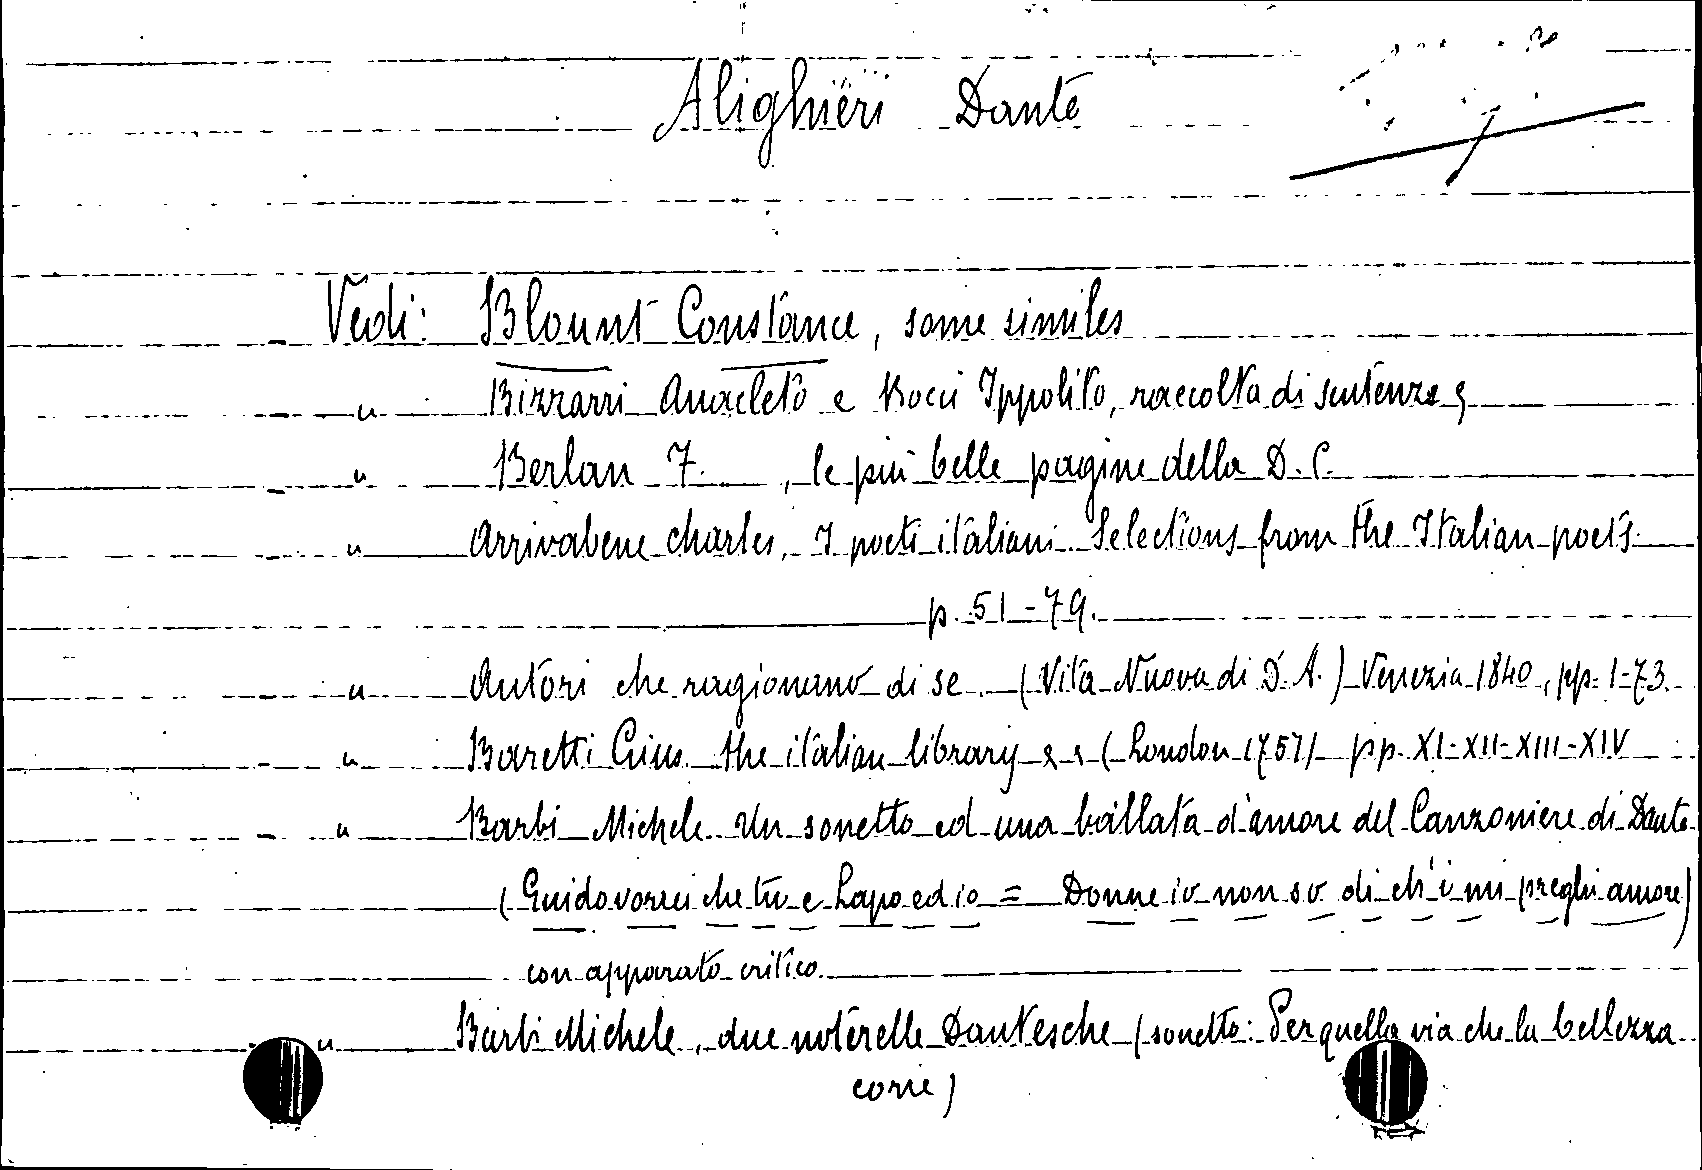 Alighieri Dante
Vedi: Blount Constance, some similes
" Bizzarri Anacleto e Bocci Ippolito, raccolta di sentenze &
" Berlan F. , le più belle pagine della D. C.
" Arrivabene Charles, I poeti italiani Selections from the Italian poets
p. 51-79.
" Autori che ragionano di se (Vita Nuova di D. A.) Venezia 1840, pp. 1-73.
" Baretti Gius. the italian library & & (London 1757) pp. XI-XII-XIII-XIV
" Barbi Michele Un sonetto ed una ballata d'amore del Canzoniere di Dante
(Guido vorrei che tu e Lapo ed io = Donne io non so di ch'i mi preghi amore)
con apparato critico.
" Barbi Michele, due noterelle Dantesche (sonetto: Per quella via che la bellezza
corre)